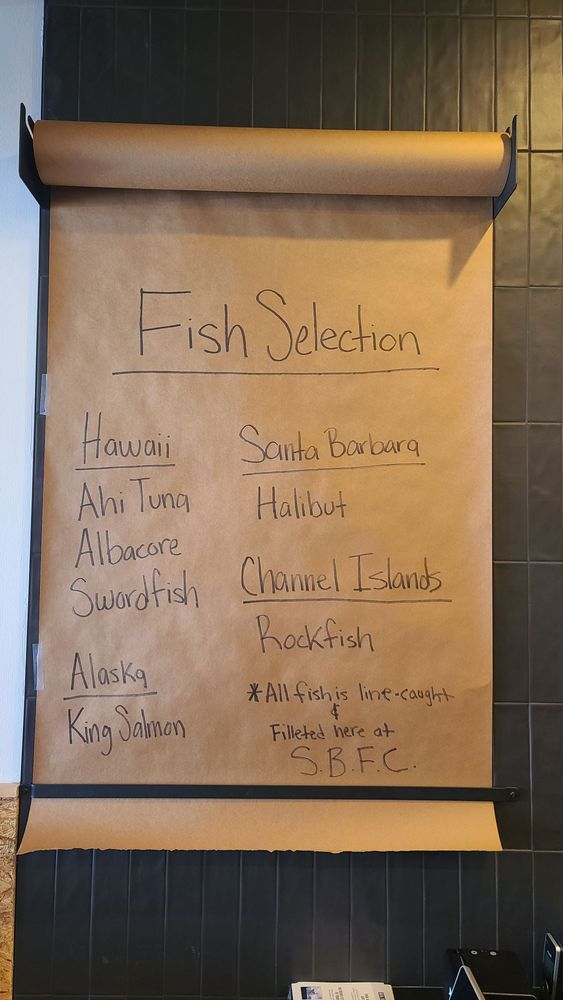 Fish Selection
Hawaii
Ahi Tuna
Albacore
Swordfish
Alaska
King Salmon
Santa Barbara
Halibut
Channel Islands
Rockfish
*All fish is line-caught
&
Filleted here at
S.B.F.C.